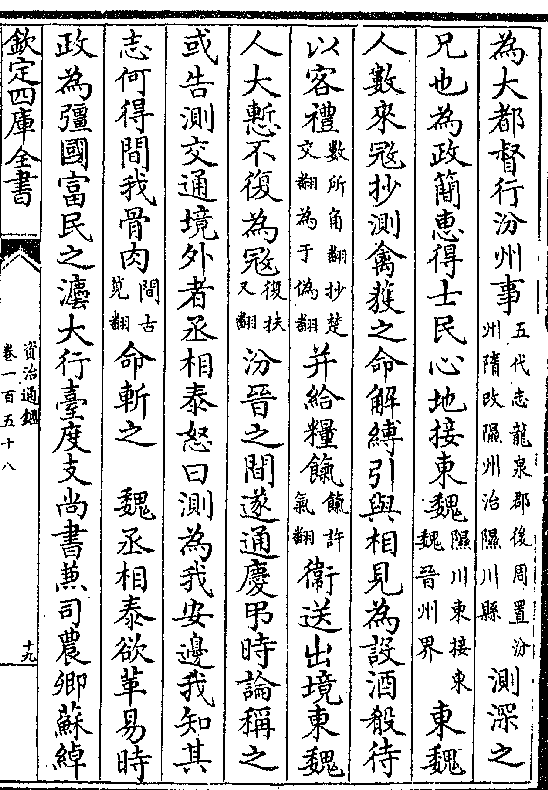 為大都督行汾州事五代志龍泉郡後周置汾州隋改隰州治隰川縣測深之
兄也為政簡惠得士民心地接東魏隰川東接東魏晉州界東魏
人數來寇抄測擒獲之命解縛引與相見為設酒殽待
以客禮數所角翻抄楚交翻為于偽翻并給糧餼餼許氣翻衛送出境東魏
人大慙不復為寇復扶又翻汾晉之間遂通慶弔時論稱之
或告測交通境外者丞相泰怒曰測為我安邊我知其
志何得間我骨肉間古莧翻命斬之 魏丞相泰欲革易時
政為彊國富民之灋大行臺度支尚書兼司農卿蘇綽
欽定四庫全書
資治通鑑
卷一百五十八
十九